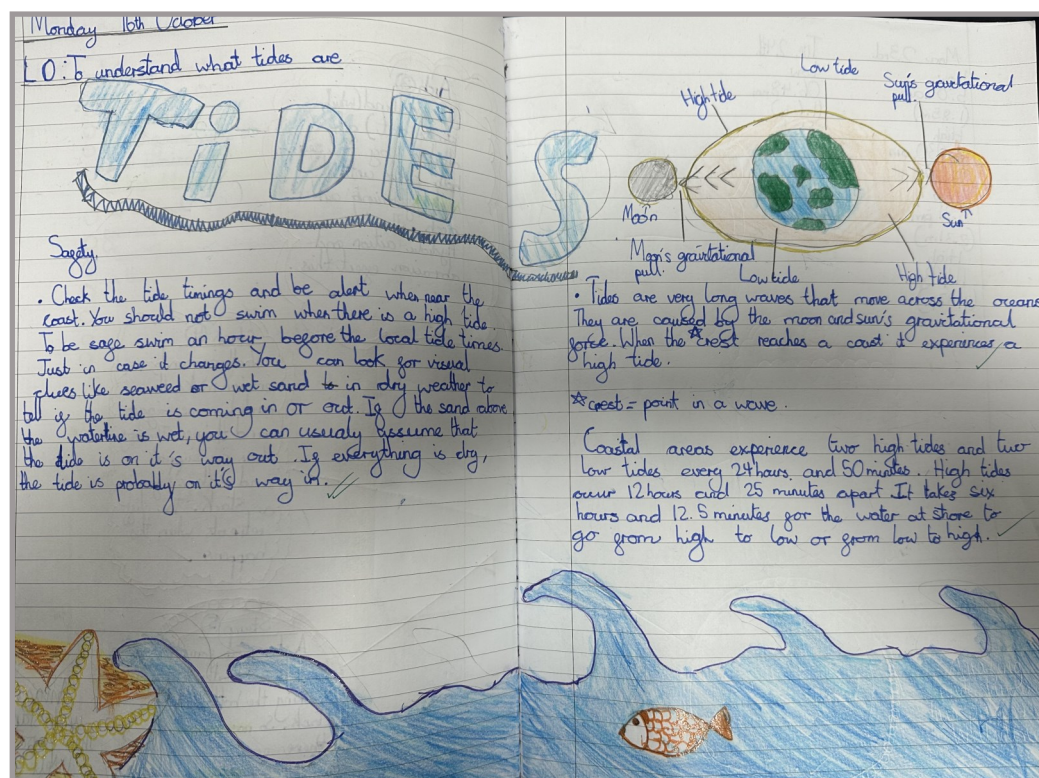 Monday 16th October
LO: To understand what tides are
TiDES
Safety.
• Check the tide timings and be alert when near the
coast. You should not swim when there is a high tide.
To be safe swim an hour, before the local tide times.
Just in case it changes. You can look for visual
clues like seaweed or wet sand in dry weather to
tell if the tide is coming in or out. If the sand above
the waterline is wet, you can usualy assume that
the tide is on it's way out. If everything is dry,
the tide is probably on it's way in.
Low tide
High tide
Sun's gravitational
pull.
Moon
Sun
Moon's gravitational
pull.
Low tide
High tide
• Tides are very long waves that move across the oceans
They are caused by the moon and sun's gravitational
force. When the ☆crest reaches a coast it experiences a
high tide.
☆crest = point in a wave.
Coastal areas experience two high tides and two
low tides every 24 hours and 50 minutes. High tides
occur 12 hours and 25 minutes apart. It takes six
hours and 12.5 minutes for the water at shore to
go from high to low or from low to high.